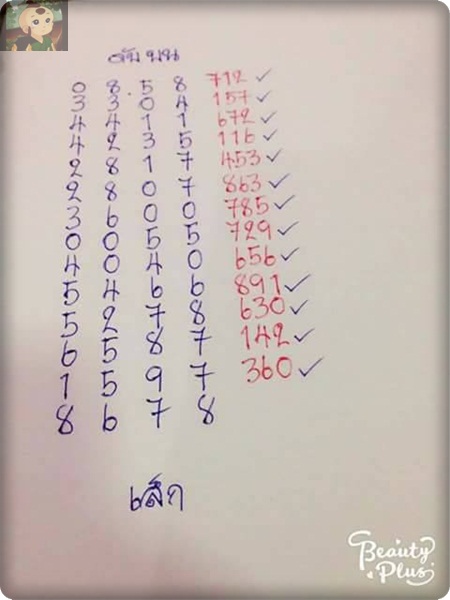 ดับ บน
0 8 5 8 712 ✓
3 3 0 4 157 ✓
4 4 1 1 672 ✓
4 2 3 5 116 ✓
2 8 1 7 453 ✓
2 8 0 7 863 ✓
3 6 0 0 785 ✓
0 0 5 5 729 ✓
4 0 4 0 656 ✓
5 4 6 6 891 ✓
5 2 7 8 630 ✓
6 5 8 7 142 ✓
1 5 9 7 360 ✓
8 6 7 8
เสือ
Beauty
Plus